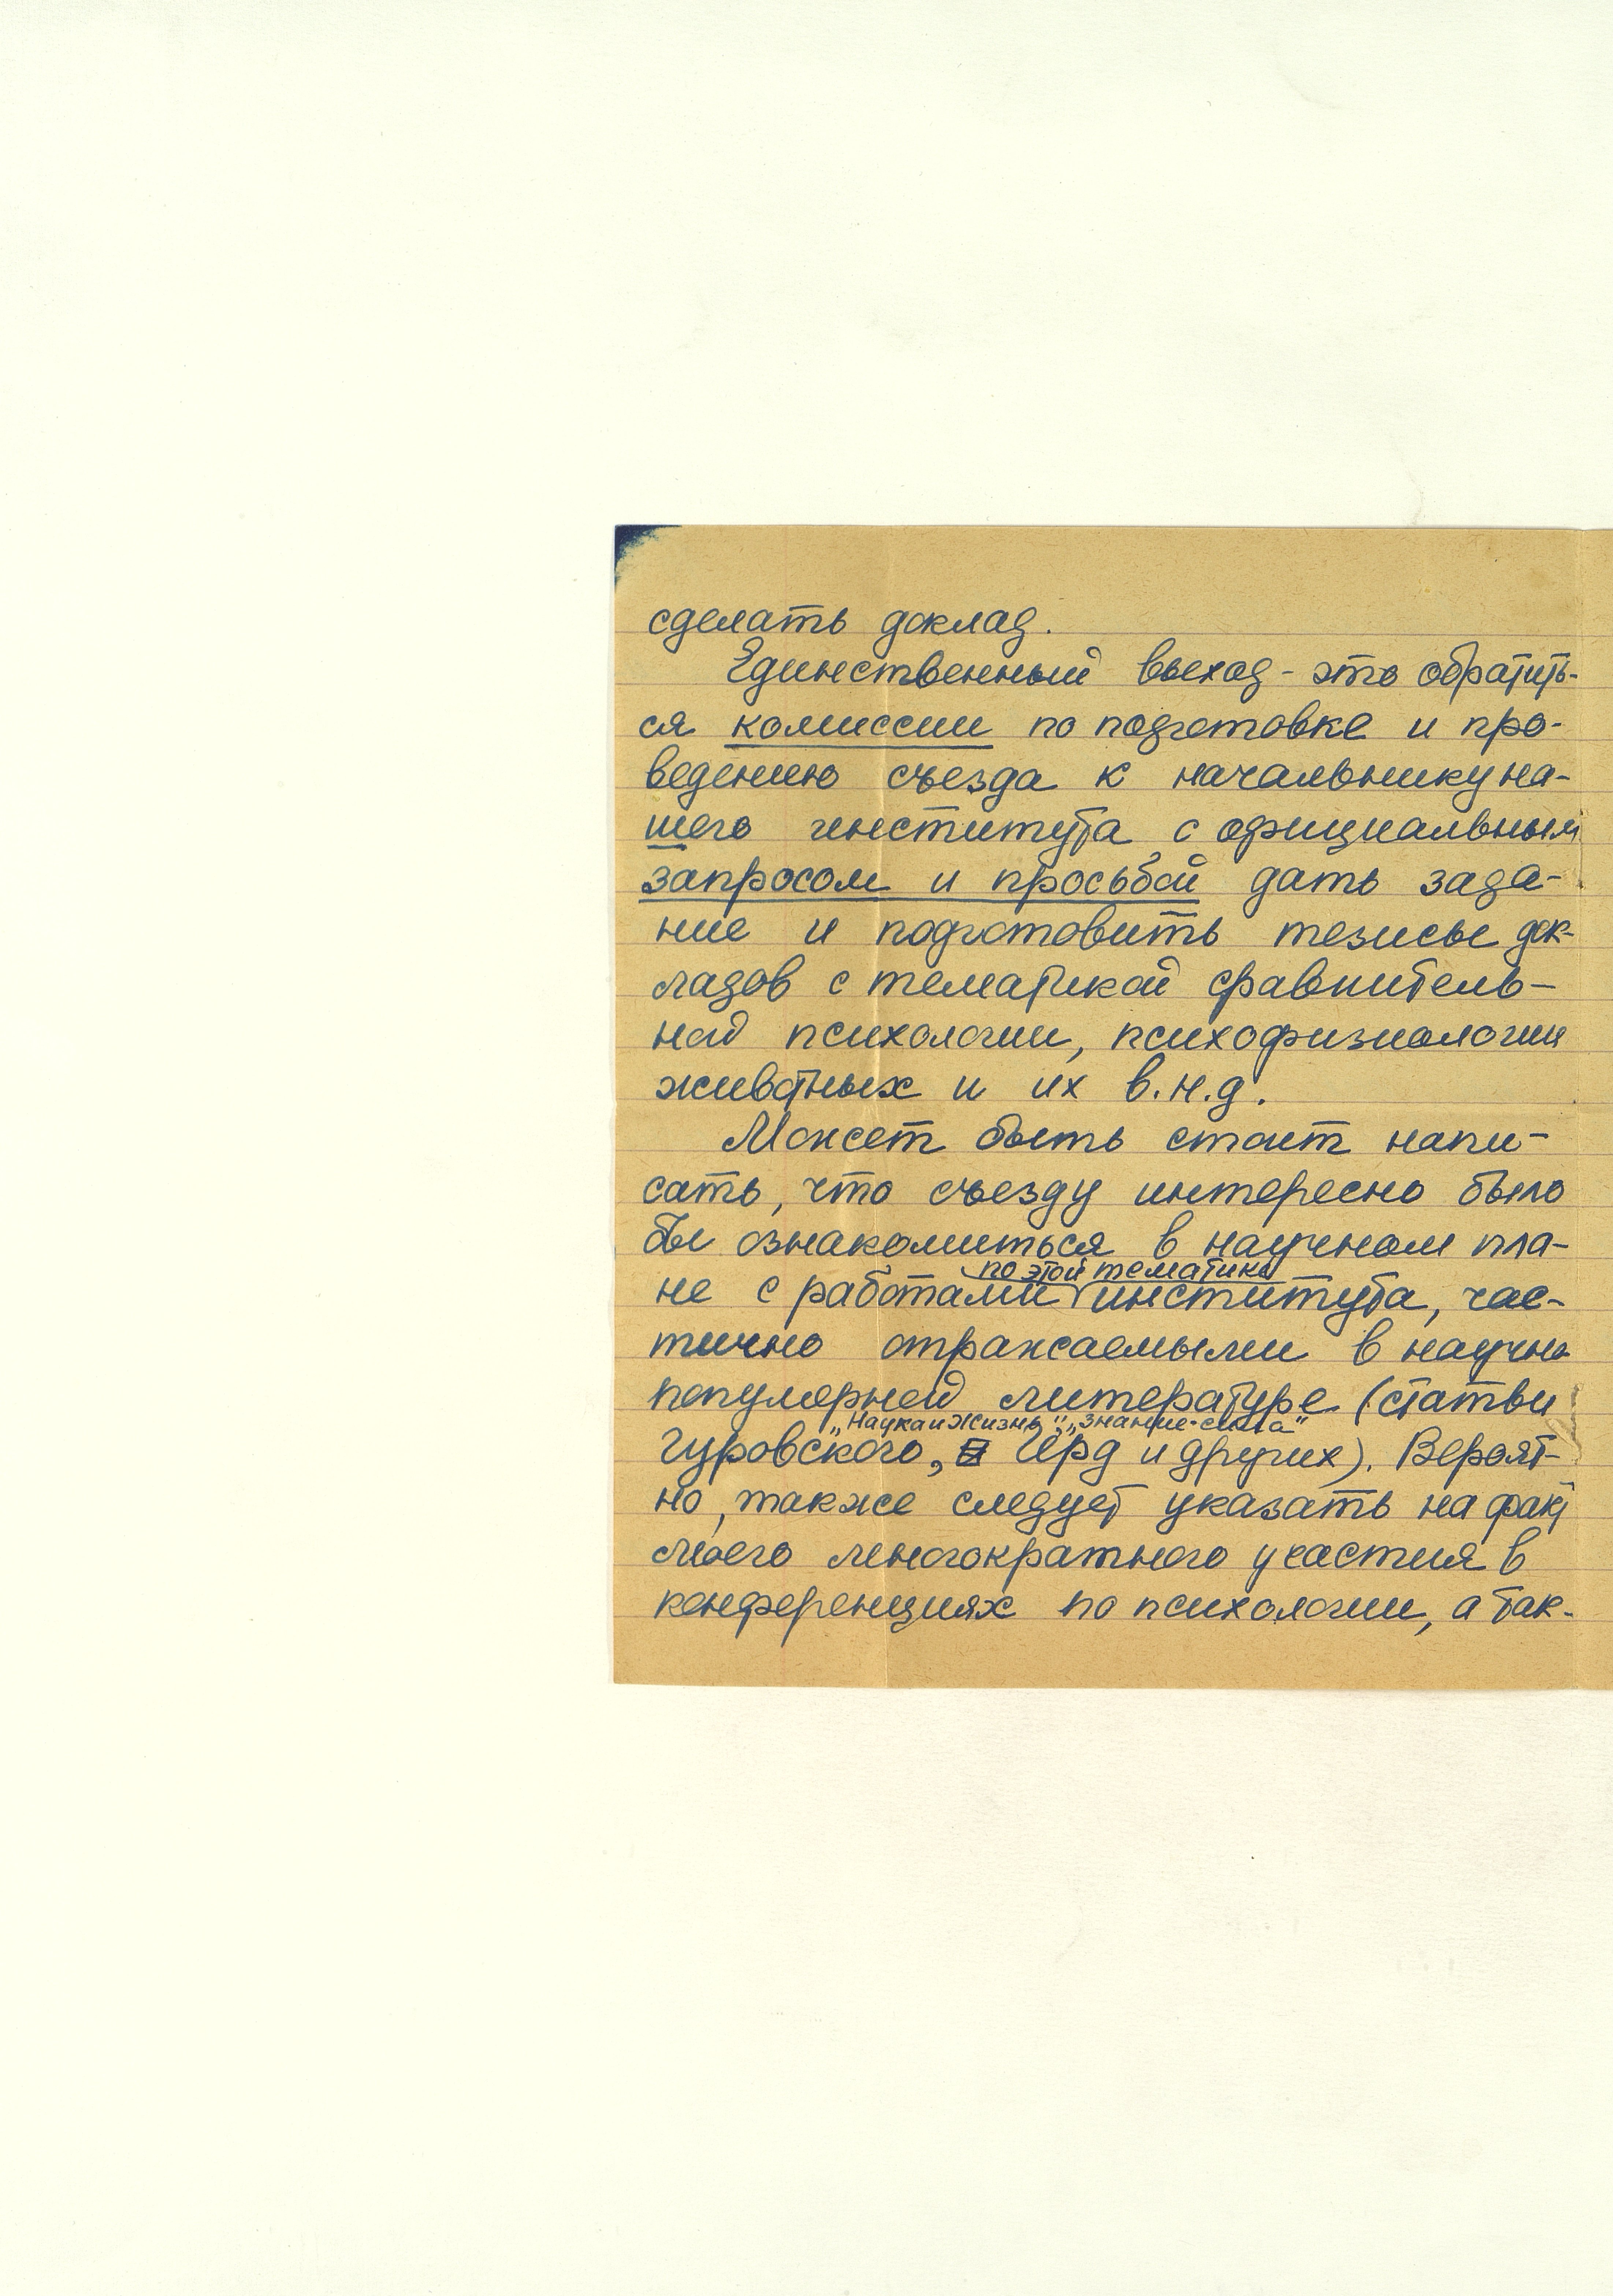 сделать доклад.
Единственный выход - это обратить-
ся комиссии по подготовке и про-
ведению съезда к начальнику на-
шего института с официальным
запросом и просьбой дать зада-
ние и подготовить тезисы док-
ладов с тематикой сравнитель-
ной психологии, психофизиологии
животных и их в.н.д.
Может быть стоит напи-
сать, что съезду интересно было
бы ознакомиться в научном пла-
по этой тематике
не с работами института, час-
тично отражаемыми в научно
популярной литературе (статьи
„Наука и жизнь", „Знание-сила"
Гуровского, Ирд и других). Вероят-
но, также следует указать на факт
моего многократного участия в
конференциях по психологии, а так-